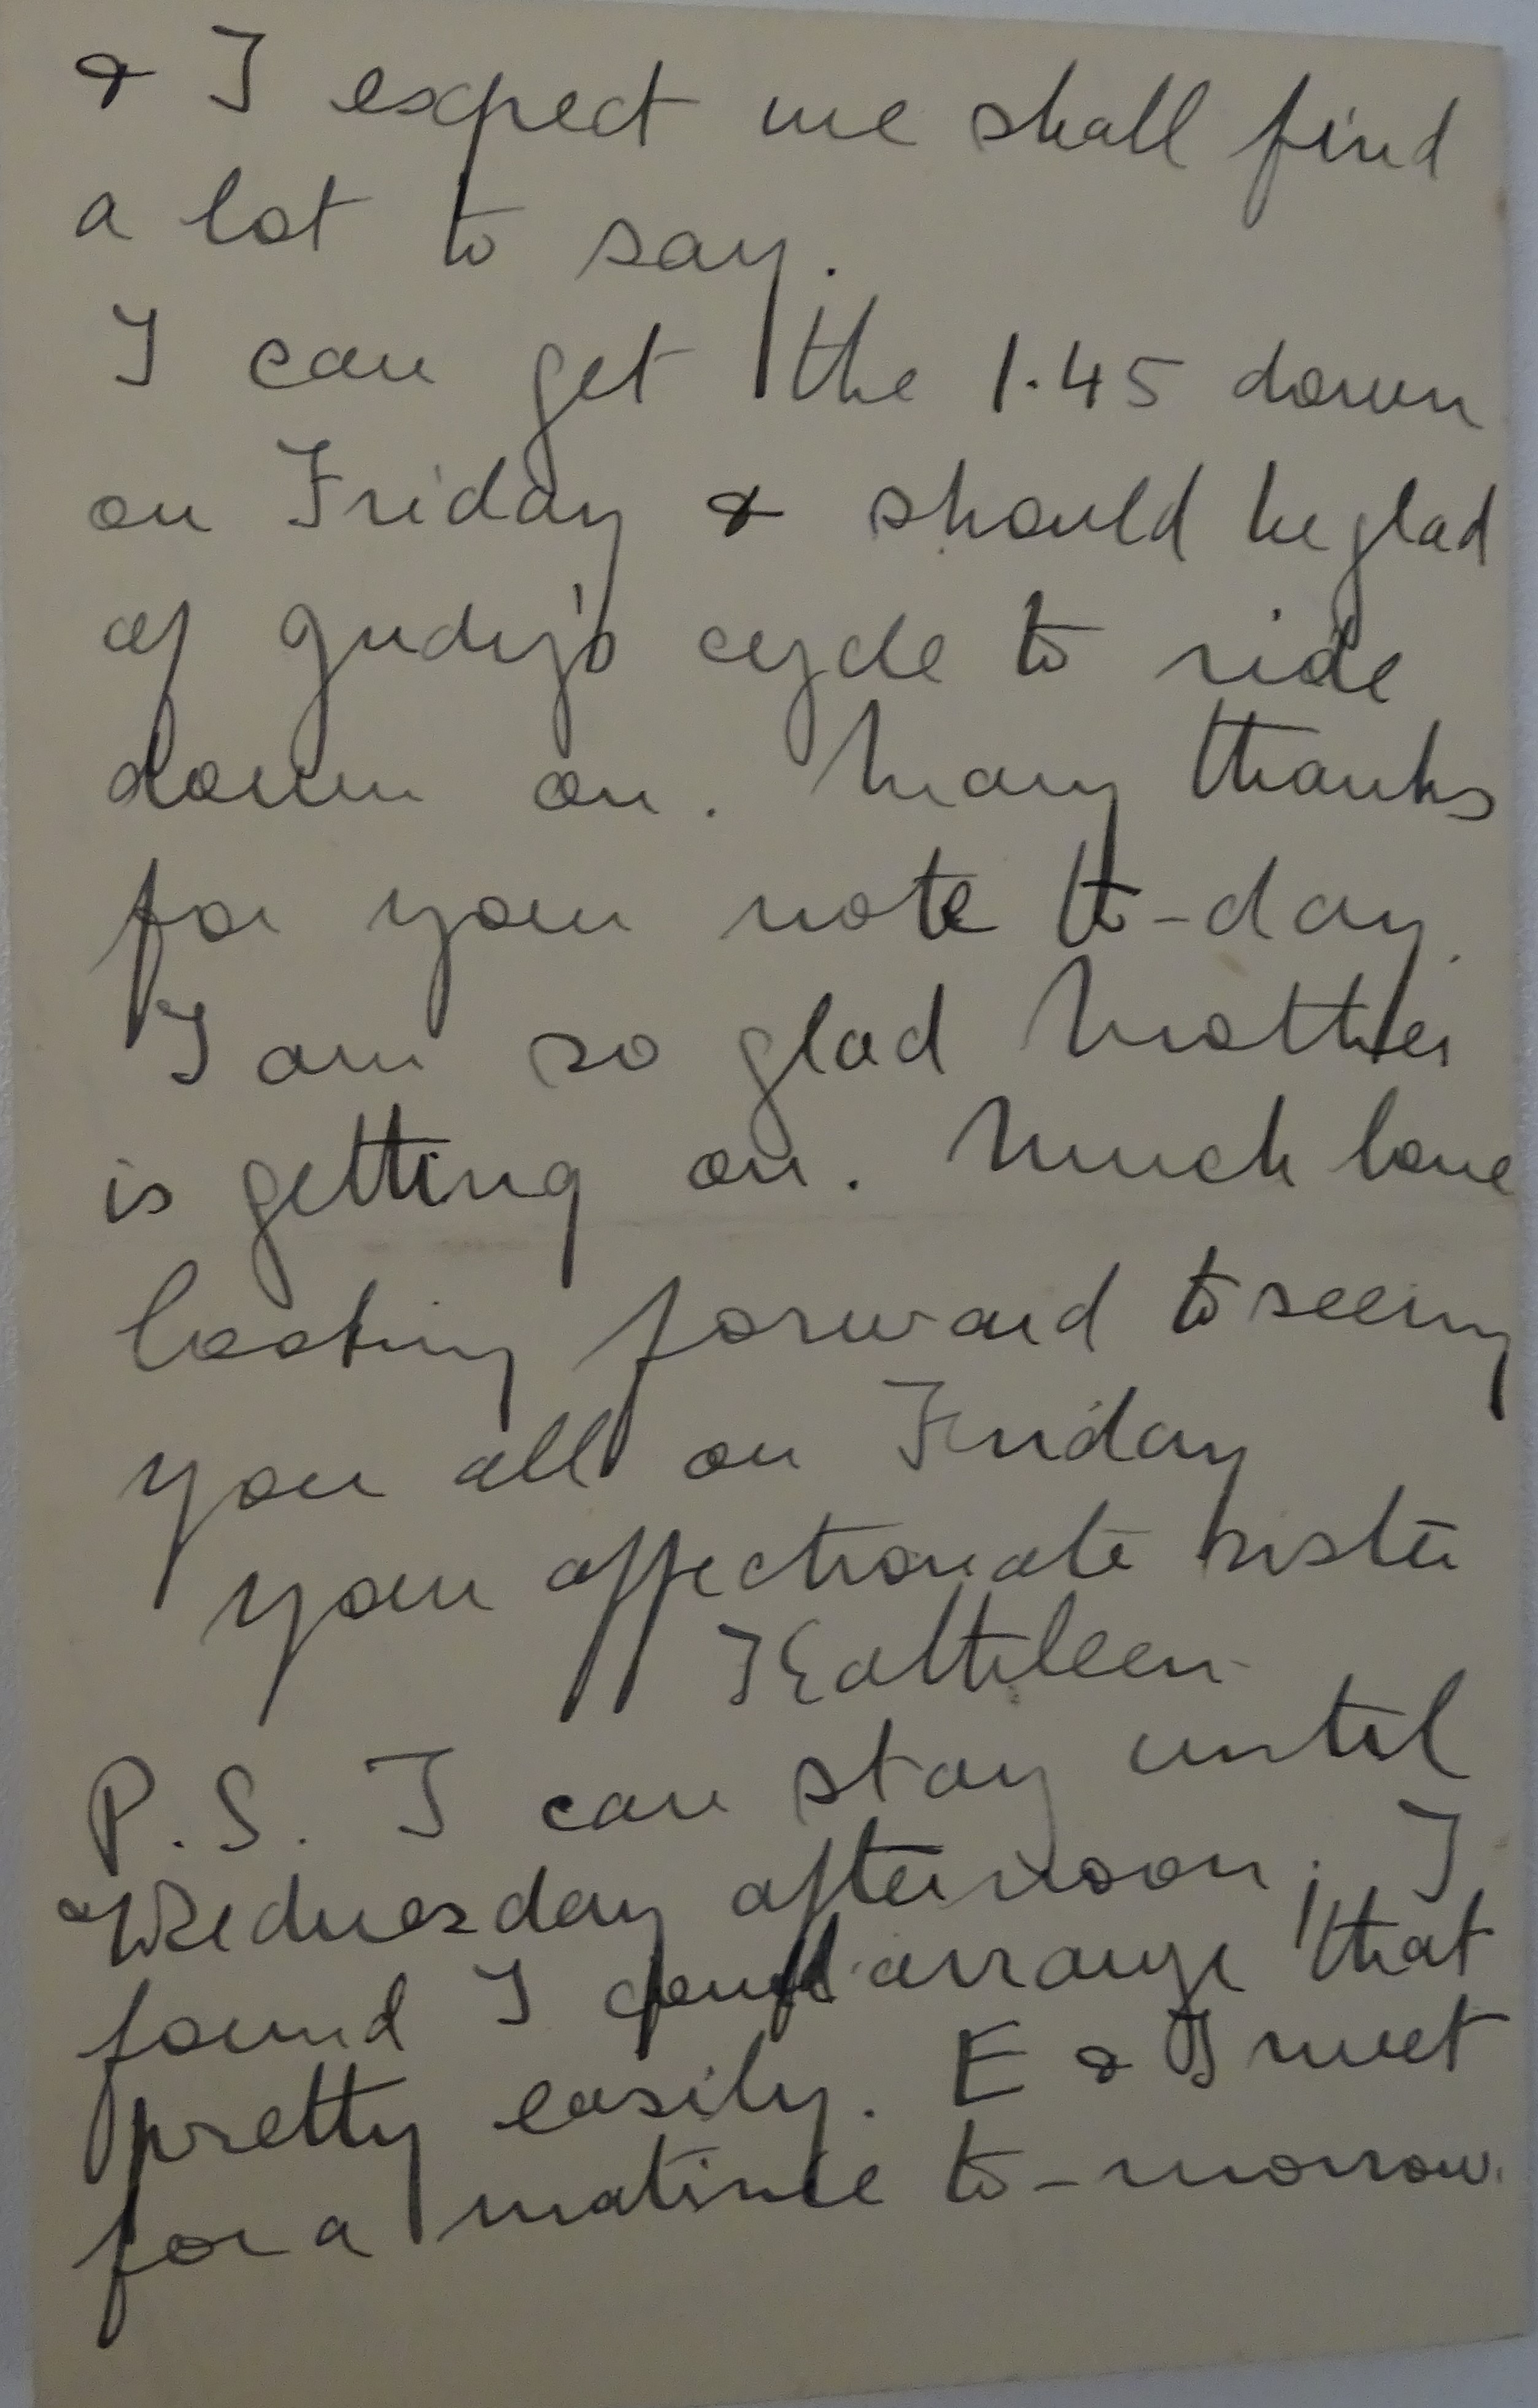 & I expect we shall find
a lot to say.
I can get the 1.45 down
on Friday & should be glad
of Judy's cycle to ride
down on. Many thanks
for your note to-day.
I am so glad Mother
is getting on. Much love
looking forward to seeing
you all on Friday
your affectionate sister
Kathleen
P.S. I can stay until
Wednesday afternoon. I
found I could arrange that
pretty easily. E & I meet
for a matinee to-morrow.